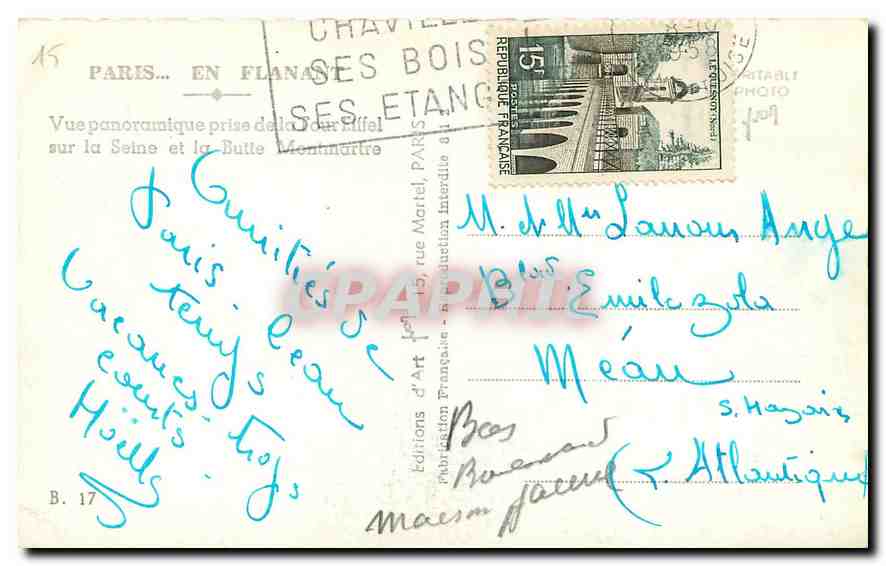 15
CHAVILLE
SES BOIS
SES ETANG
PARIS... EN FLANANT
Vue panoramique prise de la Tour Eiffel
sur la Seine et la Butte Montmartre
15F
POSTES
REPUBLIQUE FRANÇAISE
LE QUESNOY (Nord)
OISE
VERITABLE
PHOTO
Amitiés de
Paris beau
temps trop
Vacances
courts
B. 17
Editions d'Art 15, rue Martel, PARIS
Fabrication Française - Reproduction interdite
CPAPHIL
M. et Mes Lanous Ange
Blard Emile Zola
Méan
S. Nazaire
(L. Atlantique
Bas
Boulevard
maison